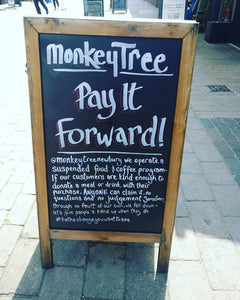 monkeyTree
Pay It
Forward!
@monkeytreenewbury we operate a
suspended food & coffee program-
If our customers are kind enough to
donate a meal or drink with their
purchase. ANYONE can claim it no
questions and no judgement. Sometimes
through no fault of our own we fall down -
let's give people a hand up when they do
#bethechangeyouwanttosee